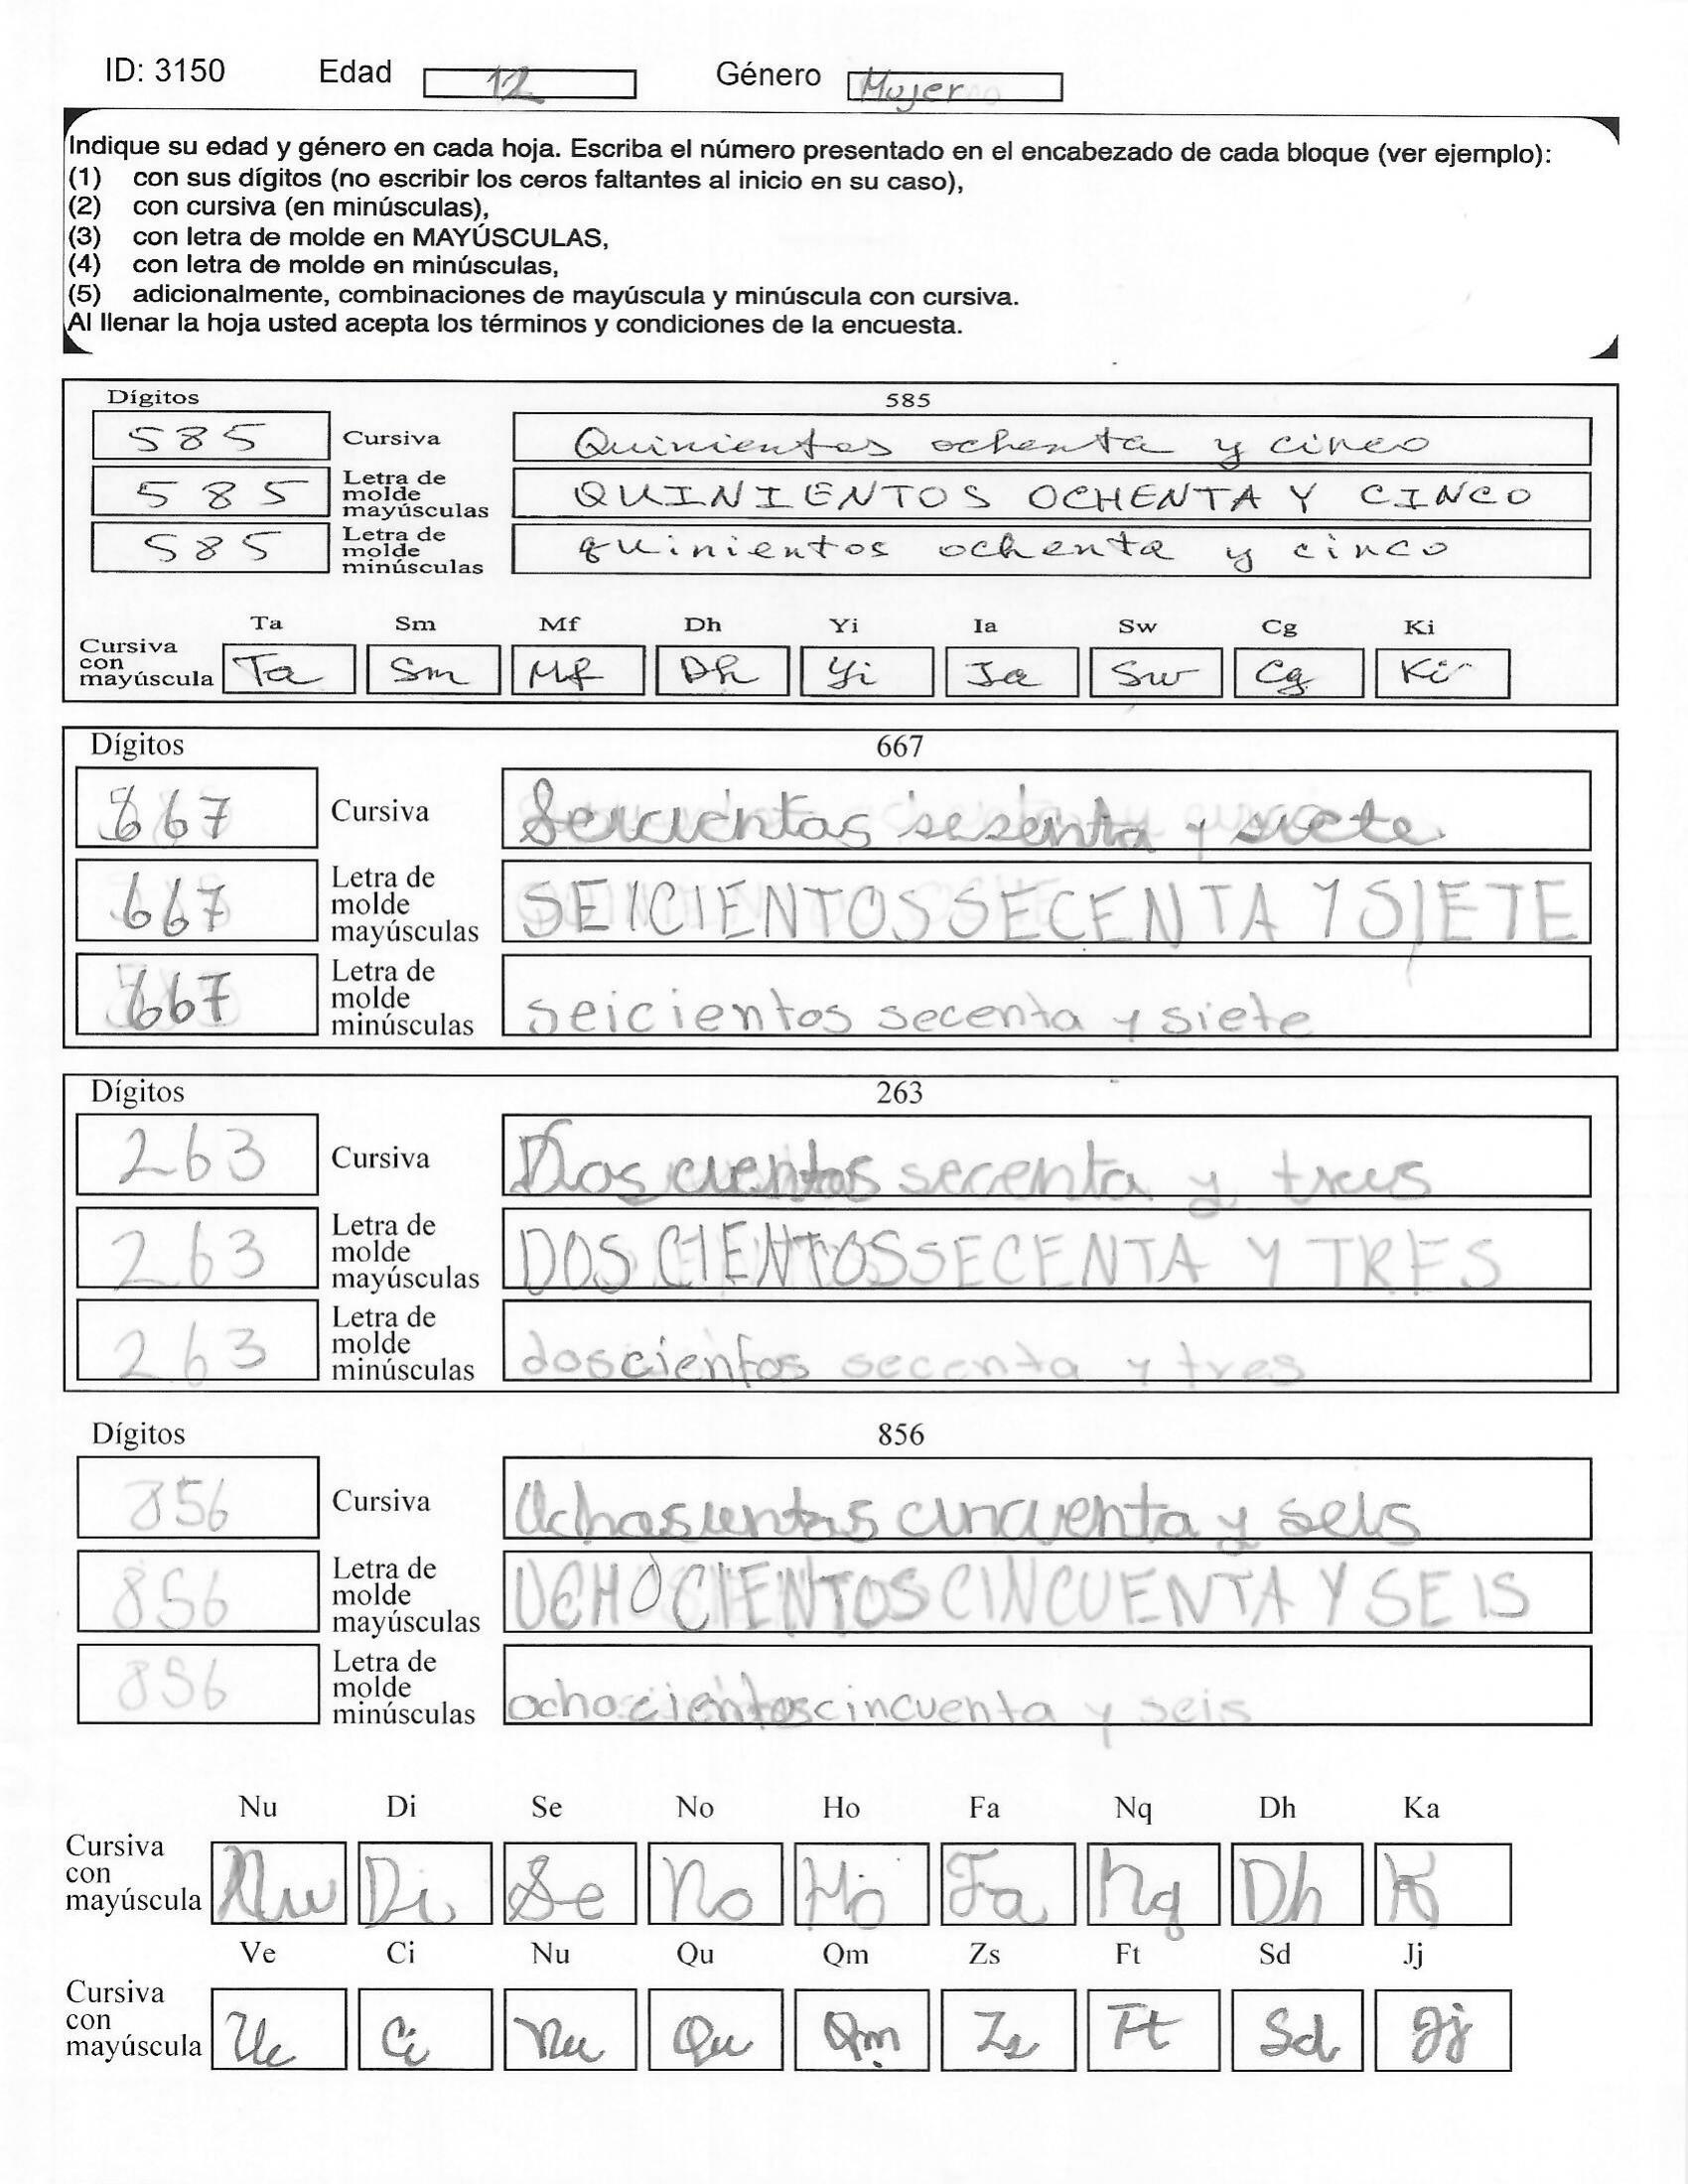 ID: 3150 Edad 12 Género Mujer
Indique su edad y género en cada hoja. Escriba el número presentado en el encabezado de cada bloque (ver ejemplo):
(1) con sus dígitos (no escribir los ceros faltantes al inicio en su caso),
(2) con cursiva (en minúsculas),
(3) con letra de molde en MAYÚSCULAS,
(4) con letra de molde en minúsculas,
(5) adicionalmente, combinaciones de mayúscula y minúscula con cursiva.
Al llenar la hoja usted acepta los términos y condiciones de la encuesta.
Dígitos 585
585 Cursiva Quinientos ochenta y cinco
585 Letra de molde mayúsculas QUINIENTOS OCHENTA Y CINCO
585 Letra de molde minúsculas quinientos ochenta y cinco
Ta Sm Mf Dh Yi Ia Sw Cg Ki
Cursiva con mayúscula Ta Sm Mf Dh Yi Ia Sw Cg Ki
Dígitos 667
667 Cursiva sesenta y siete
667 Letra de molde mayúsculas SEICIENTOS SECENTA Y SIETE
667 Letra de molde minúsculas seicientos secenta y siete
Dígitos 263
263 Cursiva Dos cientos secenta y tres
263 Letra de molde mayúsculas DOS CIENTOS SECENTA Y TRES
263 Letra de molde minúsculas doscientos secenta y tres
Dígitos 856
856 Cursiva Ochosientos cincuenta y seis
856 Letra de molde mayúsculas OCHOCIENTOS CINCUENTA Y SEIS
856 Letra de molde minúsculas ochocientos cincuenta y seis
Nu Di Se No Ho Fa Nq Dh Ka
Cursiva con mayúscula Nu Di Se No Ho Fa Nq Dh K
Ve Ci Nu Qu Qm Zs Ft Sd Jj
Cursiva con mayúscula Ve Ci Nu Qu Qm Zs Ft Sd Jj